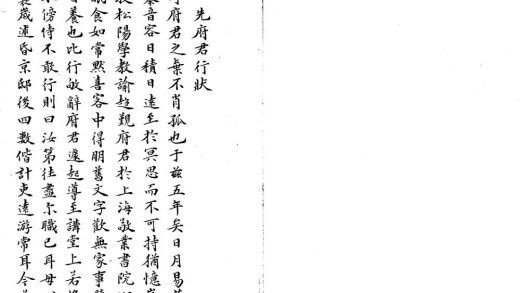 先府君行狀
府君之棄不肖孤也于茲五年矣日月易
音容日積日遠至於冥思而不可持猶憶
松陽學教諭趨覲府君於上海敬業書院
食如常點喜客中得朋舊文字歡無家事
養也比行敏辭府君遽起導至講堂上若
傍侍不敢行則曰汝第往盡尔職已耳毋
歲述昏京邸後四數偕計吏遠游常耳今